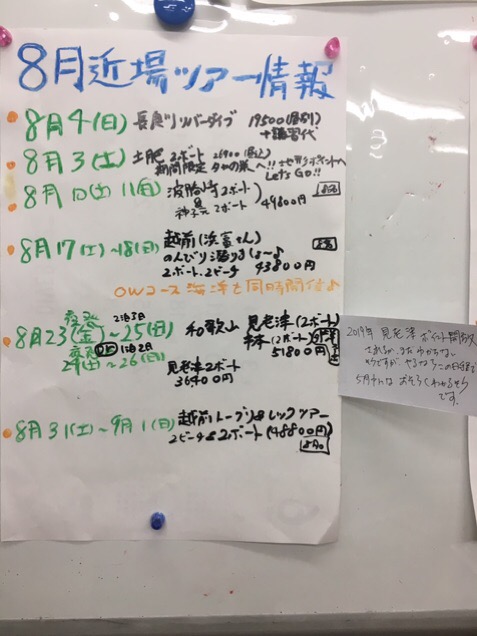 8月近場ツアー情報
8月4(日) 長良川リバーダイブ 19500(税別)
+講習代
8月3(土) 土肥2ボート 26900(税込)
期間限定 タカの巣へ!! ポイントへ
Let's Go!!
8月10(土) 11(日) 波勝崎2ボート
神子元2ボート 49800円
8月17(土)~18(日) 越前(浜喜さん)
のんびり潜りましょ〜♪
2ボート.2ビーチ 43800円
OWコース海洋も同時開付♪
夜発 2泊3日
8月23(金)~25(日) 和歌山 見老津(2ボート)
串本(2ボート)
51800円
夜発 1泊2日
24(土)~26(日) 見老津2ボート
36400円
8月31(土)~9月1(日) 越前トープリ&レックツアー
2ビーチ&2ボート(48800円)
2019年 見老津 ポイント開放
5月中には おそらくわかるそう
です.